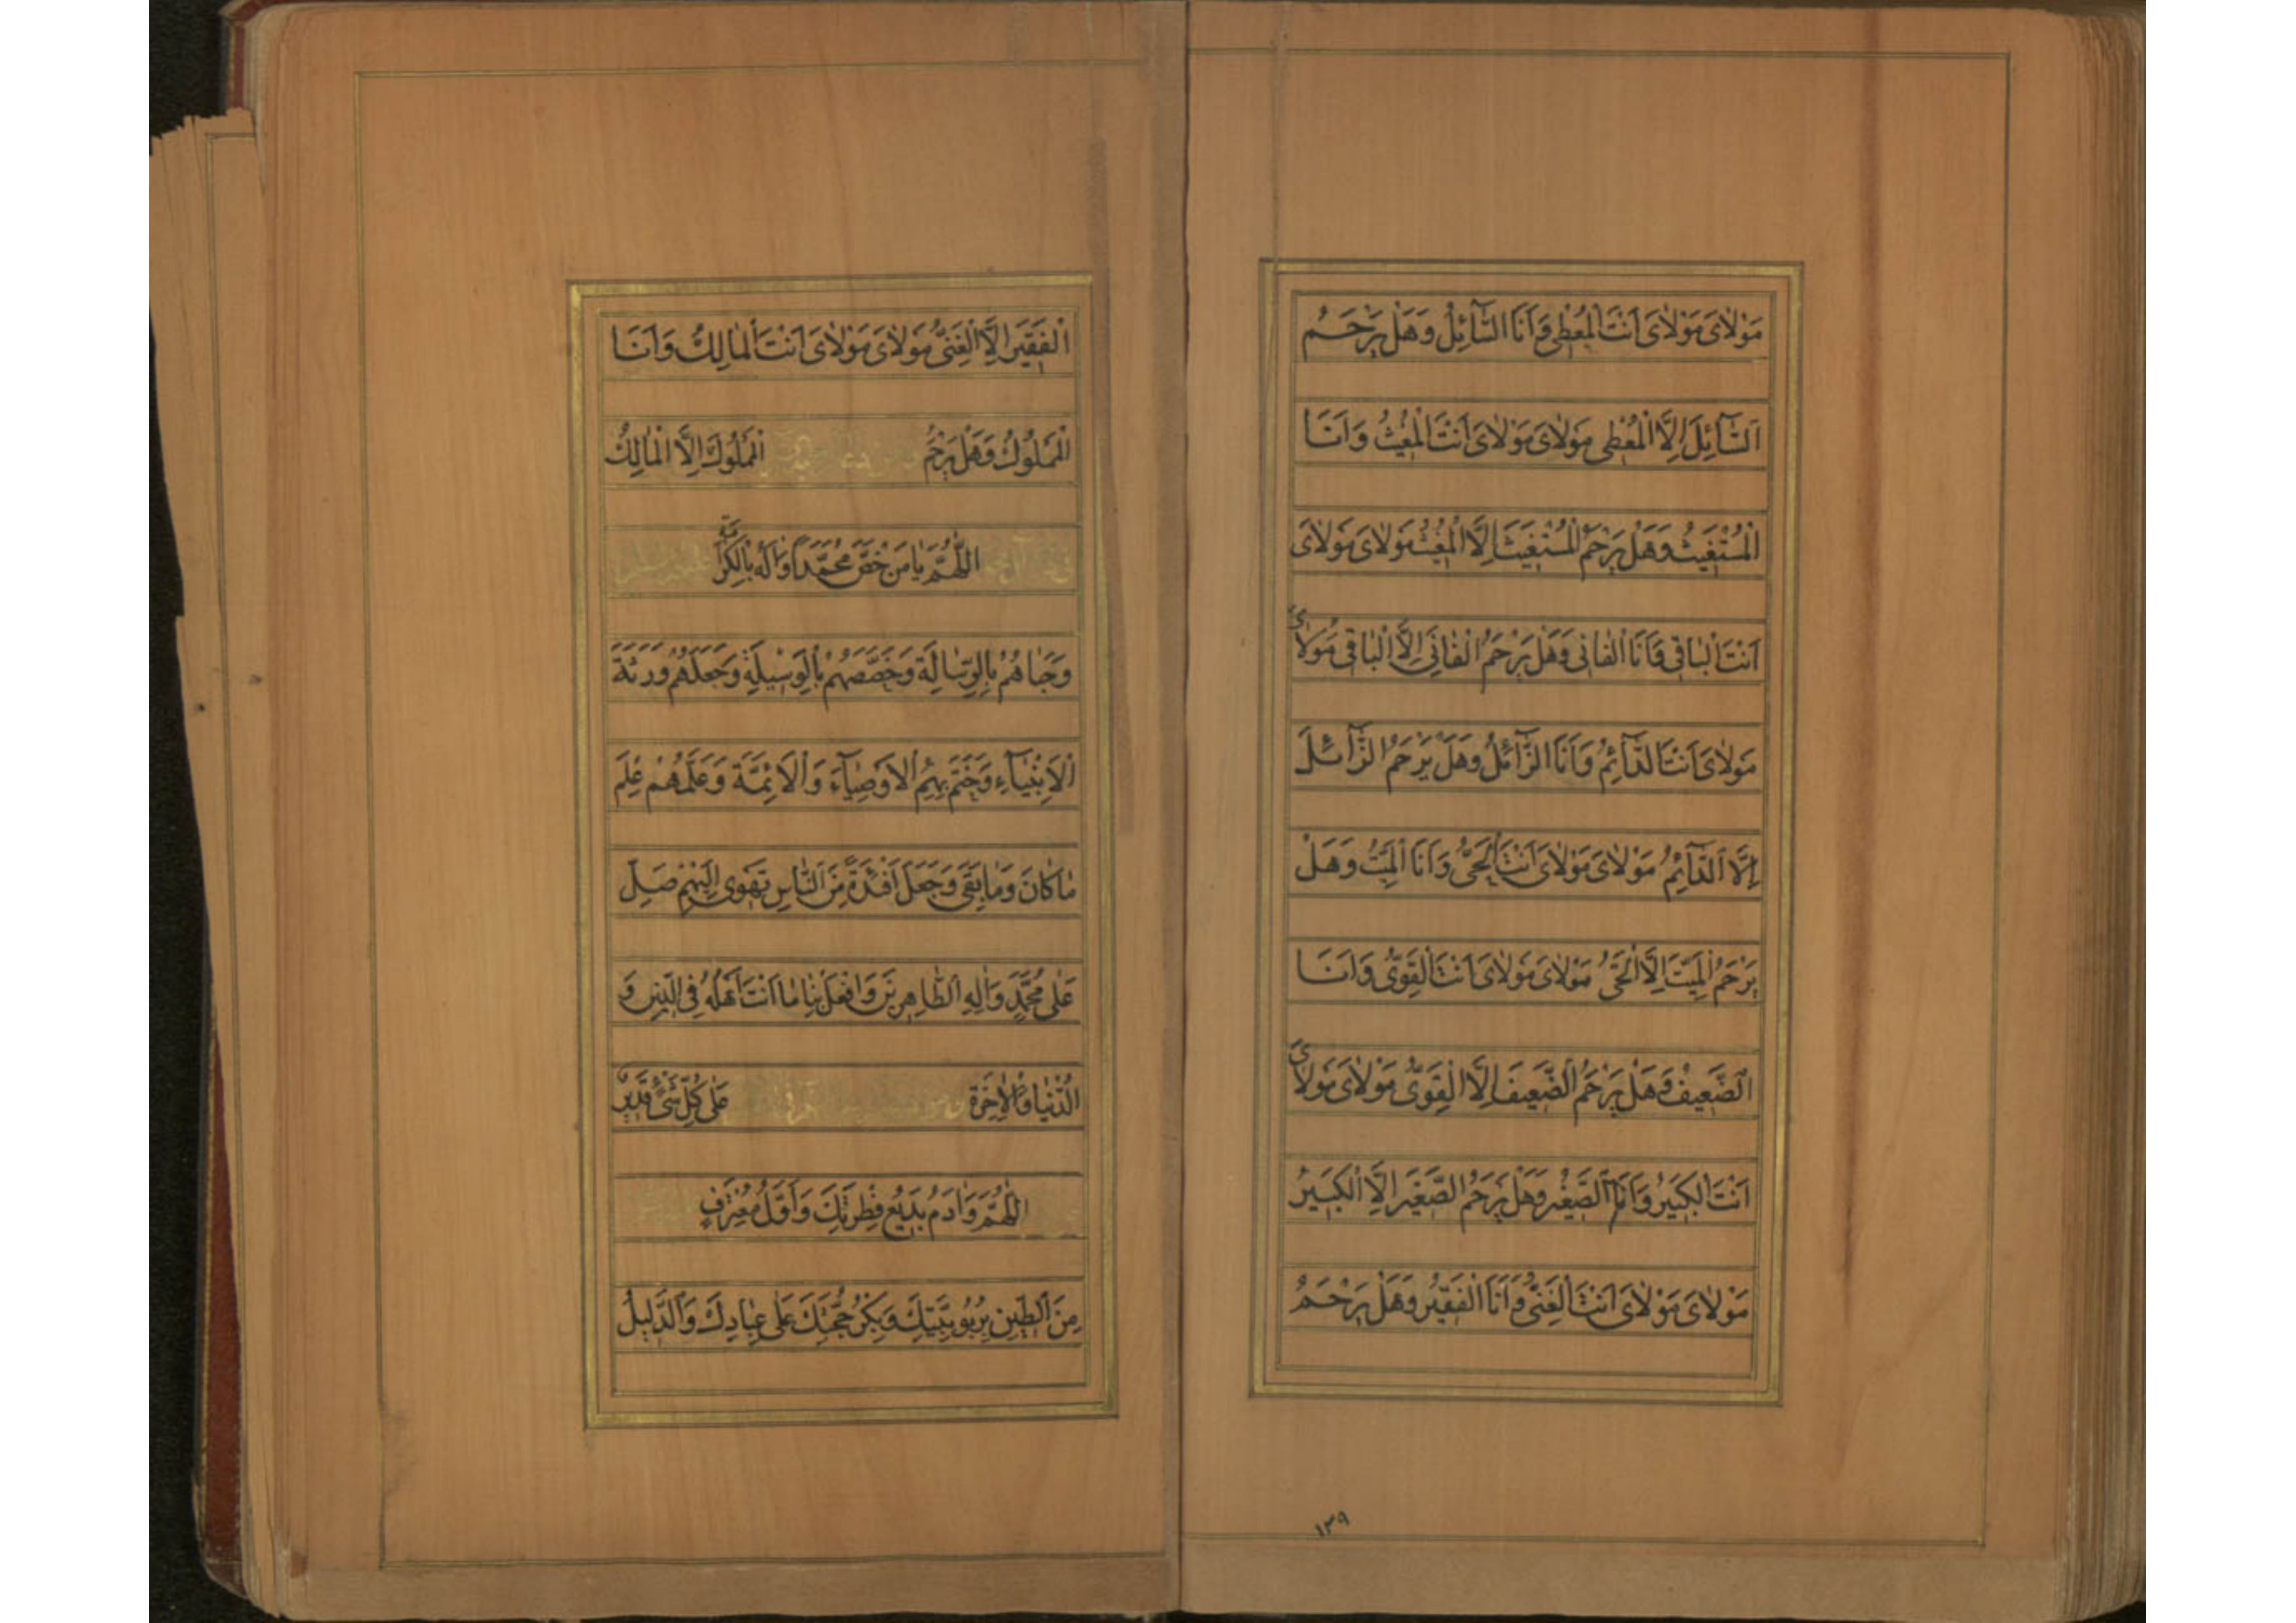 مَوْلاٰىَ مَوْلاٰىَ اَنْتَ الْمُعْطِى وَ اَنَا السَّآئِلُ وَ هَلْ يَرْحَمُ
اَلسَّآئِلَ اِلَّا الْمُعْطِى مَوْلاٰىَ مَوْلاٰىَ اَنْتَ الْمُغِيثُ وَ اَنَا
الْمُسْتَغِيثُ وَ هَلْ يَرْحَمُ الْمُسْتَغِيثَ اِلَّا الْمُغِيثُ مَوْلاٰىَ مَوْلاٰىَ
اَنْتَ الْبٰاقِى وَ اَنَا الْفٰانِى وَ هَلْ يَرْحَمُ الْفٰانِىَ اِلَّا الْبٰاقِى مَوْلاٰىَ
مَوْلاٰىَ اَنْتَ الدَّآئِمُ وَ اَنَا الزَّآئِلُ وَ هَلْ يَرْحَمُ الزَّآئِلَ
اِلَّا الدَّآئِمُ مَوْلاٰىَ مَوْلاٰىَ اَنْتَ الْحَىُّ وَ اَنَا الْمَيِّتُ وَ هَلْ
يَرْحَمُ الْمَيِّتَ اِلَّا الْحَىُّ مَوْلاٰىَ مَوْلاٰىَ اَنْتَ الْقَوِىُّ وَ اَنَا
الضَّعِيفُ وَ هَلْ يَرْحَمُ الضَّعِيفَ اِلَّا الْقَوِىُّ مَوْلاٰىَ مَوْلاٰىَ
اَنْتَ الْكَبِيرُ وَ اَنَا الصَّغِيرُ وَ هَلْ يَرْحَمُ الصَّغِيرَ اِلَّا الْكَبِيرُ
مَوْلاٰىَ مَوْلاٰىَ اَنْتَ الْغَنِىُّ وَ اَنَا الْفَقِيرُ وَ هَلْ يَرْحَمُ
١٣٩
اَلْفَقِيرَ اِلَّا الْغَنِىُّ مَوْلاٰىَ مَوْلاٰىَ اَنْتَ الْمٰالِكُ وَ اَنَا
الْمَمْلُوكُ وَ هَلْ يَرْحَمُ الْمَمْلُوكَ اِلَّا الْمٰالِكُ
اَللّٰهُمَّ يٰا مَنْ خَصَّ مُحَمَّدًا وَ اٰلَهُ بِالْكَرٰامَةِ
وَ حَبٰاهُمْ بِالرِّسٰالَةِ وَ خَصَّصَهُمْ بِالْوَسِيلَةِ وَ جَعَلَهُمْ وَرَثَةَ
اَلْاَنْبِيٰآءِ وَ خَتَمَ بِهِمُ الْاَوْصِيٰآءَ وَ الْاَئِمَّةَ وَ عَلَّمَهُمْ عِلْمَ
مٰا كٰانَ وَ مٰا بَقِىَ وَ جَعَلَ اَفْئِدَةً مِنَ النّٰاسِ تَهْوِى اِلَيْهِمْ صَلِّ
عَلٰى مُحَمَّدٍ وَ اٰلِهِ الطّٰاهِرِينَ وَ افْعَلْ بِنٰا مٰا اَنْتَ اَهْلُهُ فِى الدِّينِ وَ
الدُّنْيٰا وَ الْاٰخِرَةِ عَلٰى كُلِّ شَىْءٍ قَدِيرٌ
اَللّٰهُمَّ وَ اٰدَمُ بَدِيعُ فِطْرَتِكَ وَ اَوَّلُ مُعْتَرِفٍ
مِنَ الطِّينِ بِرُبُوبِيَّتِكَ وَ بِكْرُ حُجَّتِكَ عَلٰى عِبٰادِكَ وَ الدَّلِيلُ